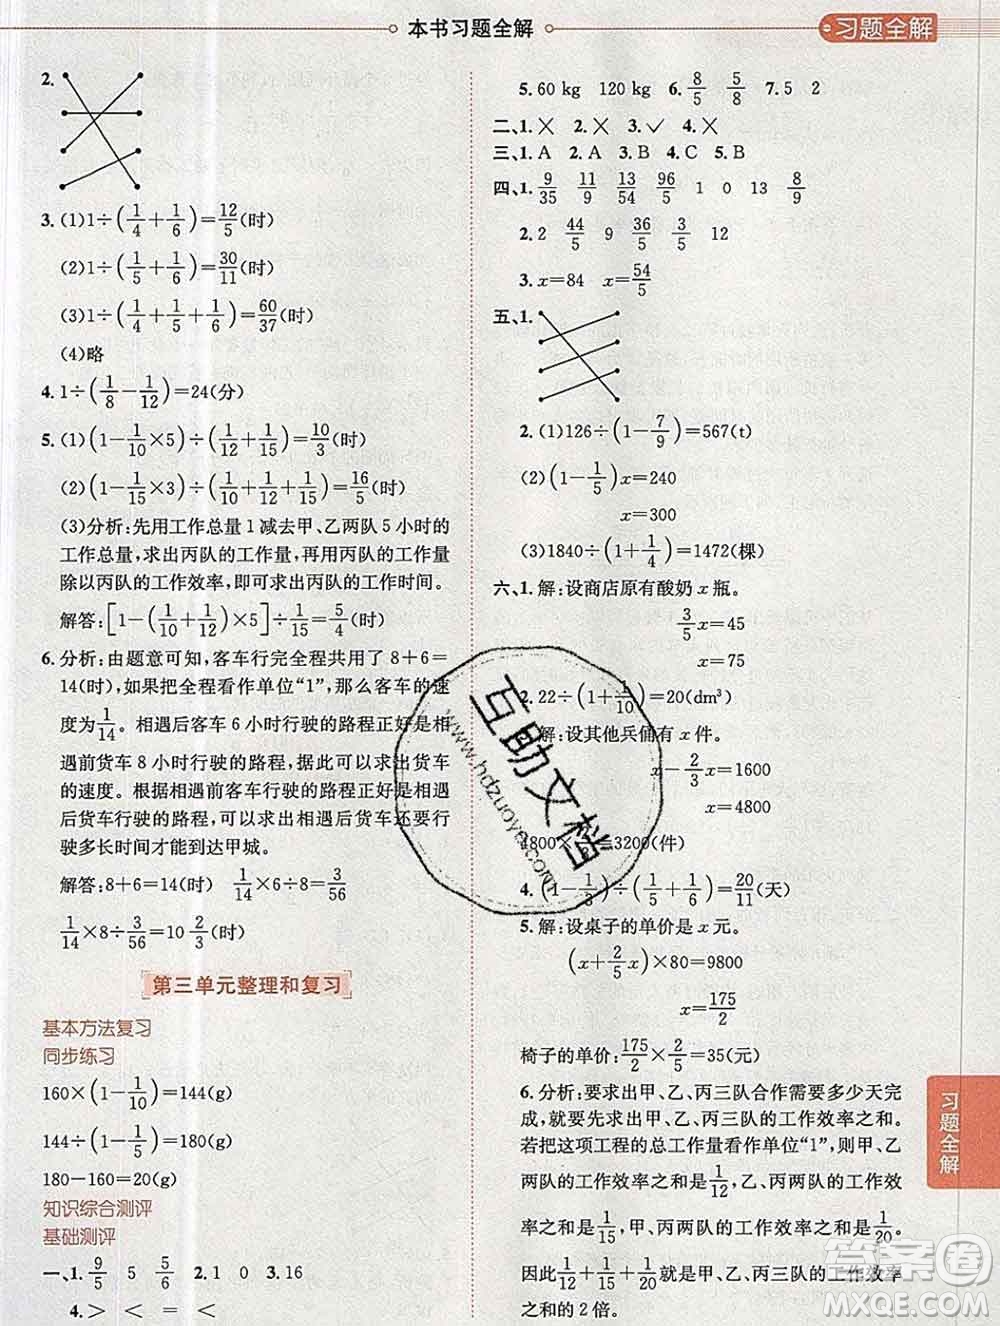 本书习题全解
习题全解
2.
3. (1)1÷(1/4+1/6)=12/5(时)
(2)1÷(1/5+1/6)=30/11(时)
(3)1÷(1/4+1/5+1/6)=60/37(时)
(4)略
4. 1÷(1/8-1/12)=24(分)
5. (1)(1-1/10×5)÷(1/12+1/15)=10/3(时)
(2)(1-1/15×3)÷(1/10+1/12+1/15)=16/5(时)
(3)分析:先用工作总量1减去甲、乙两队5小时的
工作总量,求出丙队的工作量,再用丙队的工作量
除以丙队的工作效率,即可求出丙队的工作时间。
解答:[1-(1/10+1/12)×5]÷1/15=5/4(时)
6. 分析:由题意可知,客车行完全程共用了8+6=
14(时),如果把全程看作单位“1”,那么客车的速
度为1/14。相遇后客车6小时行驶的路程正好是相
遇前货车8小时行驶的路程,据此可以求出货车
的速度。根据相遇前客车行驶的路程正好是相遇
后货车行驶的路程,可以求出相遇后货车还要行
驶多长时间才能到达甲城。
解答:8+6=14(时) 1/14×6÷8=3/56
1/14×8÷3/56=10 2/3(时)
第三单元整理和复习
基本方法复习
同步练习
160×(1-1/10)=144(g)
144÷(1-1/5)=180(g)
180-160=20(g)
知识综合测评
基础测评
一、1. 9/5 5 5/6 2. 1 0 3. 16
4. > < = <
5. 60 kg 120 kg 6. 8/5 5/8 7. 5 2
二、1. × 2. × 3. ✓ 4. ×
三、1. A 2. A 3. B 4. C 5. B
四、1. 9/35 11/9 13/54 96/5 1 0 13 8/9
2. 2 44/5 9 36/5 3/5 12
3. x=84 x=54/5
五、1.
2. (1)126÷(1-7/9)=567(t)
(2)(1-1/5)x=240
x=300
(3)1840÷(1+1/4)=1472(棵)
六、1. 解:设商店原有酸奶x瓶。
3/5x=45
x=75
2. 22÷(1+1/10)=20(dm³)
3. 解:设其他兵俑有x件。
x-2/3x=1600
x=4800
4800×2/3=3200(件)
4. (1-1/3)÷(1/5+1/6)=20/11(天)
5. 解:设桌子的单价是x元。
(x+2/5x)×80=9800
x=175/2
椅子的单价:175/2×2/5=35(元)
6. 分析:要求出甲、乙、丙三队合作需要多少天完
成,就要先求出甲、乙、丙三队的工作效率之和。
若把这项工程的总工作量看作单位“1”,则甲、乙
两队的工作效率之和是1/12,乙、丙两队的工作效
率之和是1/15,甲、丙两队的工作效率之和是1/20。
因此1/12+1/15+1/20是甲、乙、丙三队的工作效率
之和的2倍。
习题全解
互助文档
www.hdzuoye.com
答案圈
MXQE.COM